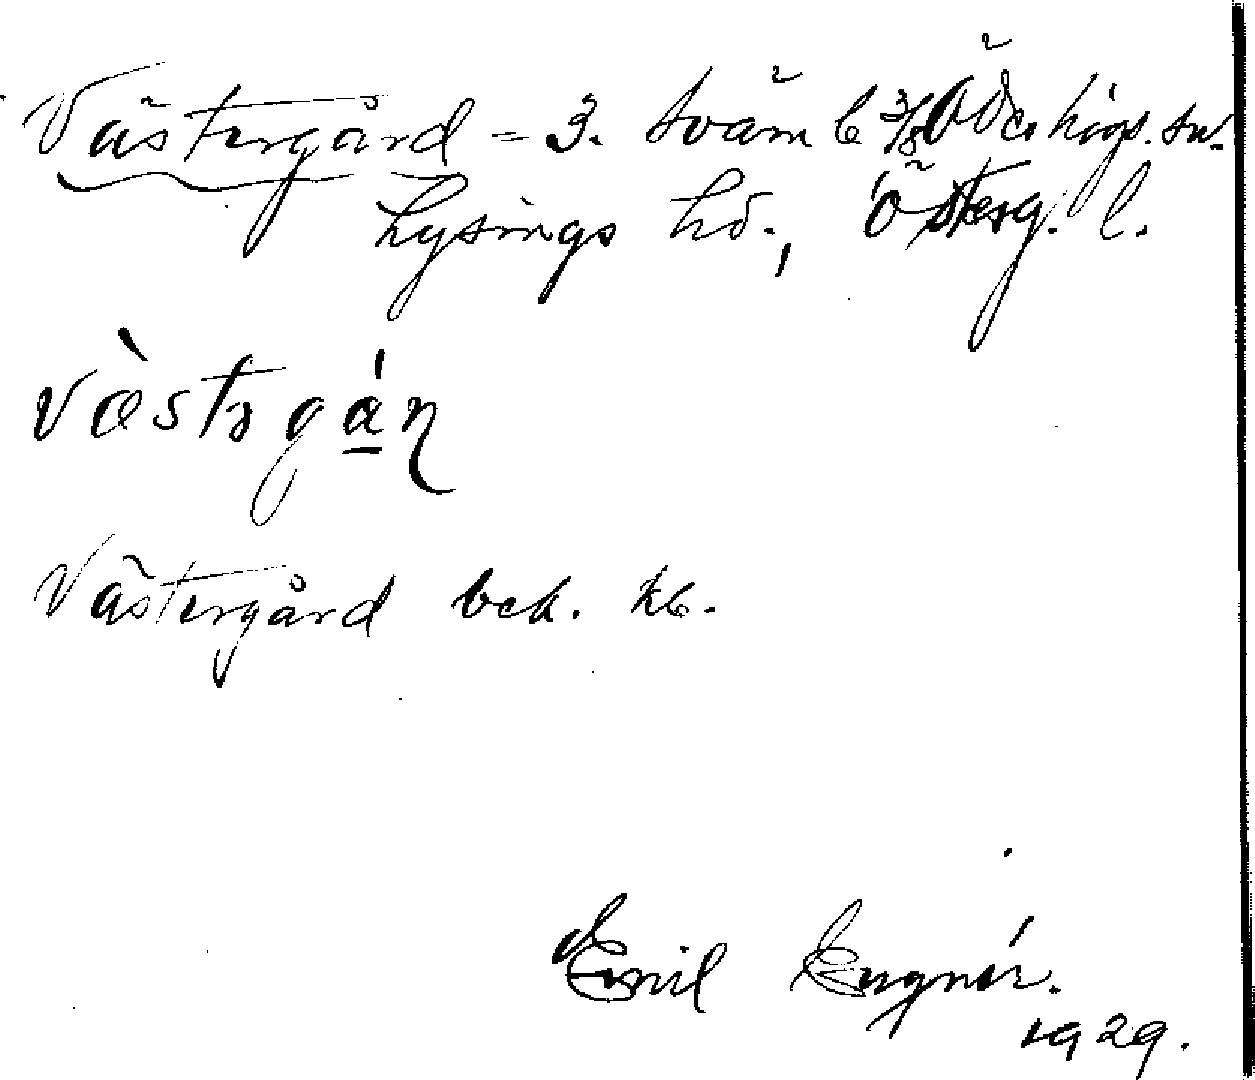 Västergård = 3. Sväm 6 3/8 Ödeshögs. sn.
Lysings hd., Österg. l.
västrgán
Västergård bek. kb.
Emil Engnér.
1929.